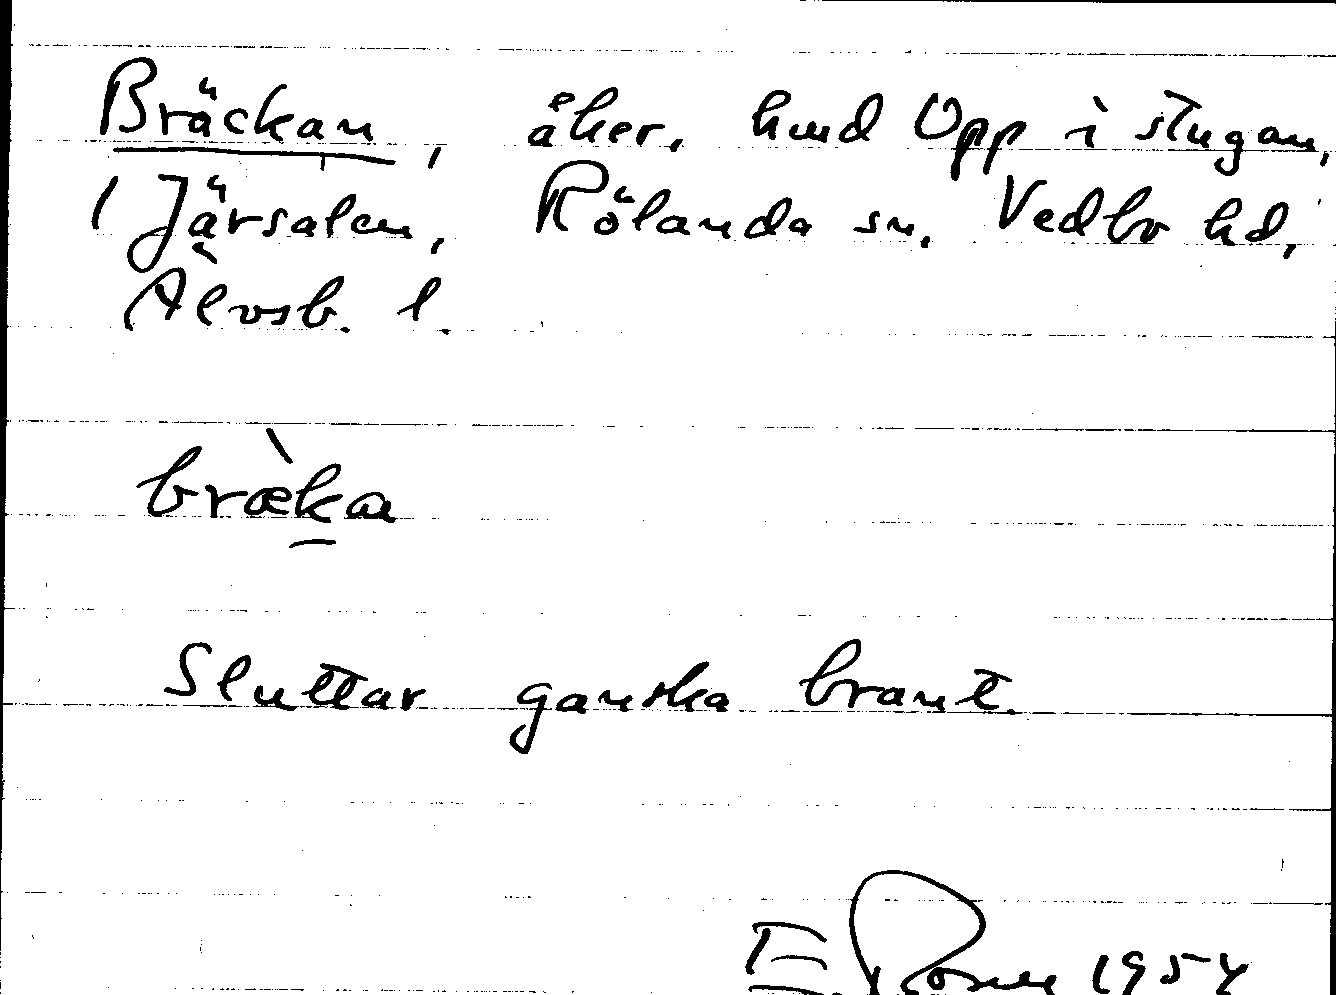 Bräckan, åker, hmd Opp i stugan,
1 Järsalen, Rölanda sn, Vedbo hd,
Älvsb. l.
bræ̀kan
Sluttar ganska brant.
E. Rosell 1954